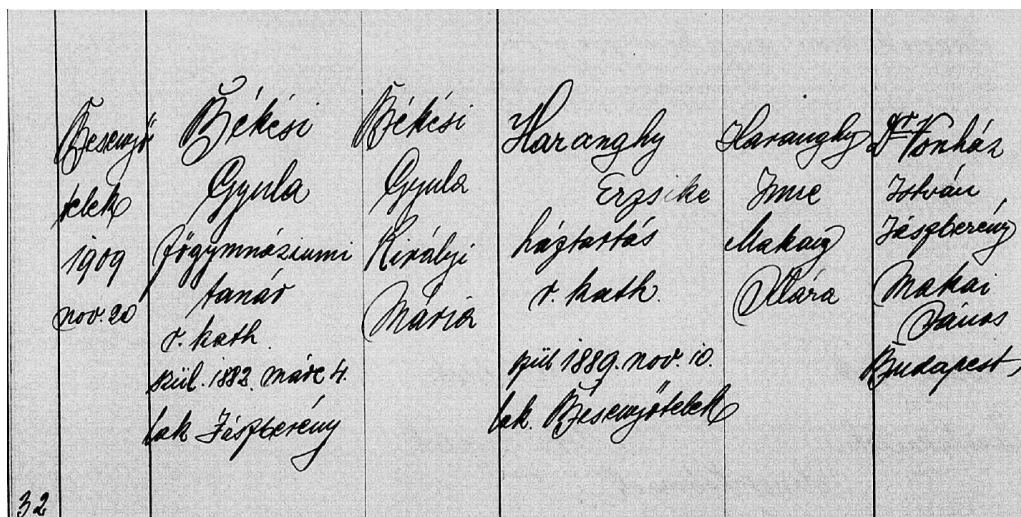 Besenyő
telek
1909
nov. 20
Békési
Gyula
főgymnáziumi
tanár
r. kath.
szül. 1882. márc 4.
lak Jászberény
Békési
Gyula
Királyi
Mária
Haranghy
Erzsike
háztartás
r. kath.
szül 1889. nov. 10.
lak. Besenyőtelek
Haranghy
Imre
Makay
Klára
Dr Vonház
István
Jászberény
Makai
János
Budapest
32